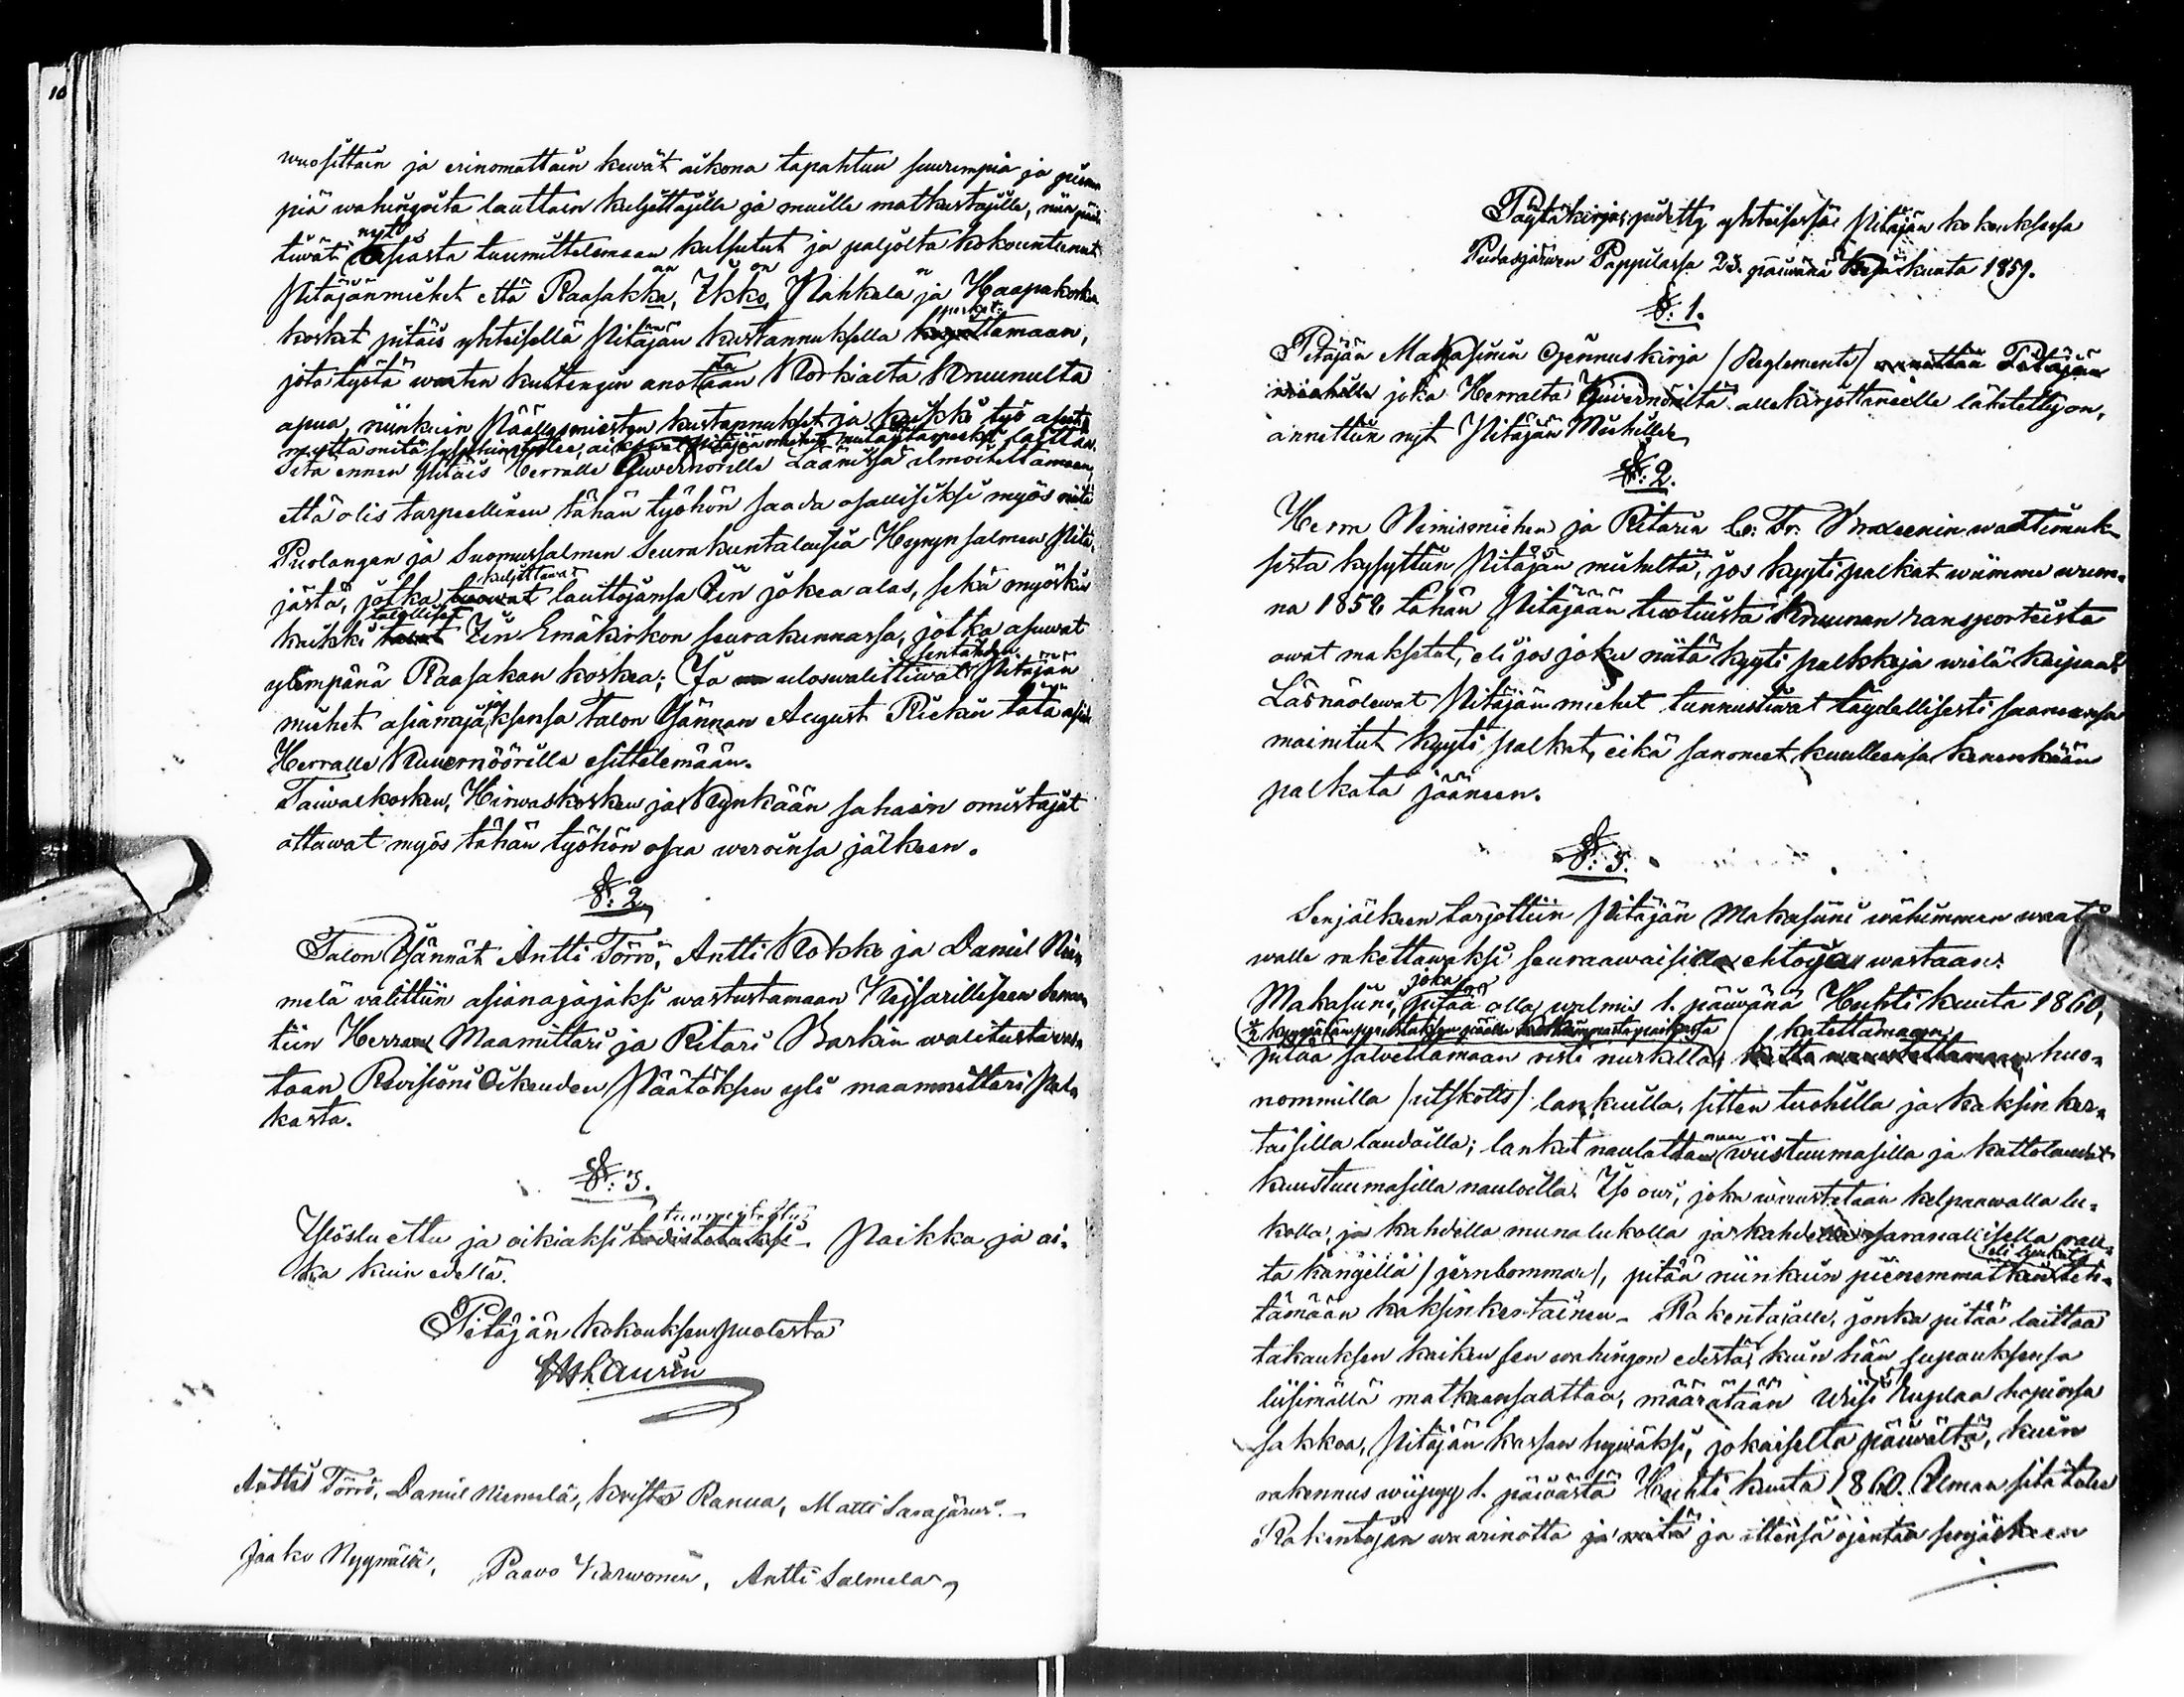 10
wuosittain ja erinomattain kewät aikona tapahtuu suurempia ja
piä wahingoita lauttain kuljettajille ja muille matkustajille, niin
tiwät nyt asiasta tuumittelemaan kutsutut ja paljolta kokountunut
Pitäjänmiehet että Raasakka, Ikko, Nahkala ja Haapakoska
kosket pitäis yhteisellä Pitäjän kustannuksella perkattamaan,
jota työtä warten kuitengin anotaan Korkialta Kruunulta
apua, niinkuin Päällysmiesten kustannukset ja kaikki työ
mutta
Sitä ennen pitäis Herralle Guvernörille Läänissä ilmoitettamaan,
että olis tarpeellinen tähän työhön saada osallisiksi myös niitä
Puolangan ja Suomussalmen Seurakuntalaisia Hyrynsalmen Pitä-
jästä, jotka kuljettawat lauttojansa Iin jokea alas, sekä myöskin
kaikki talolliset Iin Emäkirkon seurakunnassa, jotka asuwat
ylempänä Raasakan koskea; Ja uloswalittiwat sentähden Pitäjän
miehet asianajajaksensa Talon Isännän August Riekin tätä asia
Herralle Kuvernöörille esittelemään.
Taiwalkosken, Hirwaskosken ja Kynkään sahain omistajat
ottawat myös tähän työhön osaa weroinsa jälkeen.
§: 2.
Talon Isännät Antti Törrö, Antti Kokko ja Daniel Nie
melä valittiin asianajajaksi wastustamaan Keisarilliseen Senaa
tiin Herran Maamittari ja Ritari Barkin walitusta was-
taan Revisioni Oikeuden Päätöksen yli maanmittari Pal
kasta.
§: 3.
Ylösluettu ja oikiaksi tunnustettu. Paikka ja ai-
ka kuin edellä.
Pitäjän kokouksen puolesta
Laurin
Antti Törrö, Daniel Niemelä, Krister Ranua, Matti Sarajärwi.
Jaako Nyynäki, Paavo Karwonen, Antti Salmela
Pöytäkirja, pidetty yhteisessä Pitäjän kokouksessa
Pudasjärwen Pappilassa 23. päiwänä Kesäkuuta 1859.
§: 1.
Pitäjän Makasinin Ojennuskirja /Reglemente/ Pitäjän
miehille joka Herralta Guvernöriltä allekirjottaneelle lähetetty on,
annettiin nyt Pitäjän Miehille.
§: 2.
Herra Nimismiehen ja Ritarin C: Fr: waatimuk-
sesta kysyttiin Pitäjän miehiltä, jos kyytipalkat wiimme wuon-
na 1858 tähän Pitäjään tuotuista Kruunun ransporteista
owat maksetut, eli jos joku niitä kyyti palkkoja wielä kaipaa?
Läsnäolewat Pitäjänmiehet tunnustiwat täydellisesti saaneensa
mainitut kyyti palkat, eikä sanoneet kuulleensa kenenkään
palkata jääneen.
§: 3.
Senjälkeen tarjottiin Pitäjän Makasiini wähimmen waati
walle rakettawaksi seuraawaisilla ehtoja wastaan:
Makasiini, joka pitää olla walmis 1. päiwänä Huhti kuuta 1860,
pitää salwettamaan risti nurkilla, katettamaan huo-
nommilla /utskotts/ lankuilla, sitten tuohilla ja kaksin ker-
taisilla laudoilla; lankut naulattaman wiistuumasilla ja kattolaudat
kuustuumasilla nauloilla. Iso owi, joka warustetaan kelpaawalla lu-
kolla, ja kahdella munalukolla ja kahdella saranallisella rau-
ta kangella /jernbommar/, pitää niinkuin pienemmätkin eli luukut teh-
tämään kaksinkertainen. Rakentajalle, jonka pitää laittaa
takauksen kaiken sen wahingon edestä, kuin hän lupauksensa
liisimällä matkaansaattaa, määrätään Wiisi Ruplaa hopiassa
sakkoa, Pitäjän kassan hywäksi, jokaiselta päiwältä, kuin
rakennus wiipyy 1. päiwästä Huhti kuuta 1860. Ilman sitä tulee
Rakentajan waarinotta ja ittensä ojentaa senjälkeen